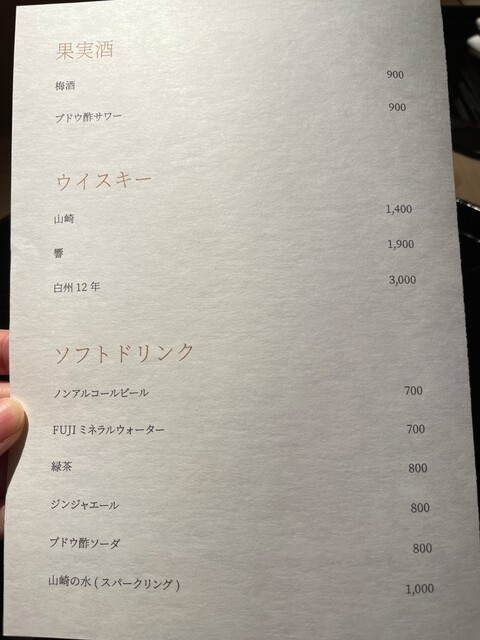 果実酒
梅酒 900
ブドウ酢サワー 900
ウイスキー
山崎 1,400
響 1,900
白州 12 年 3,000
ソフトドリンク
ノンアルコールビール 700
FUJI ミネラルウォーター 700
緑茶 800
ジンジャエール 800
ブドウ酢ソーダ 800
山崎の水 ( スパークリング ) 1,000